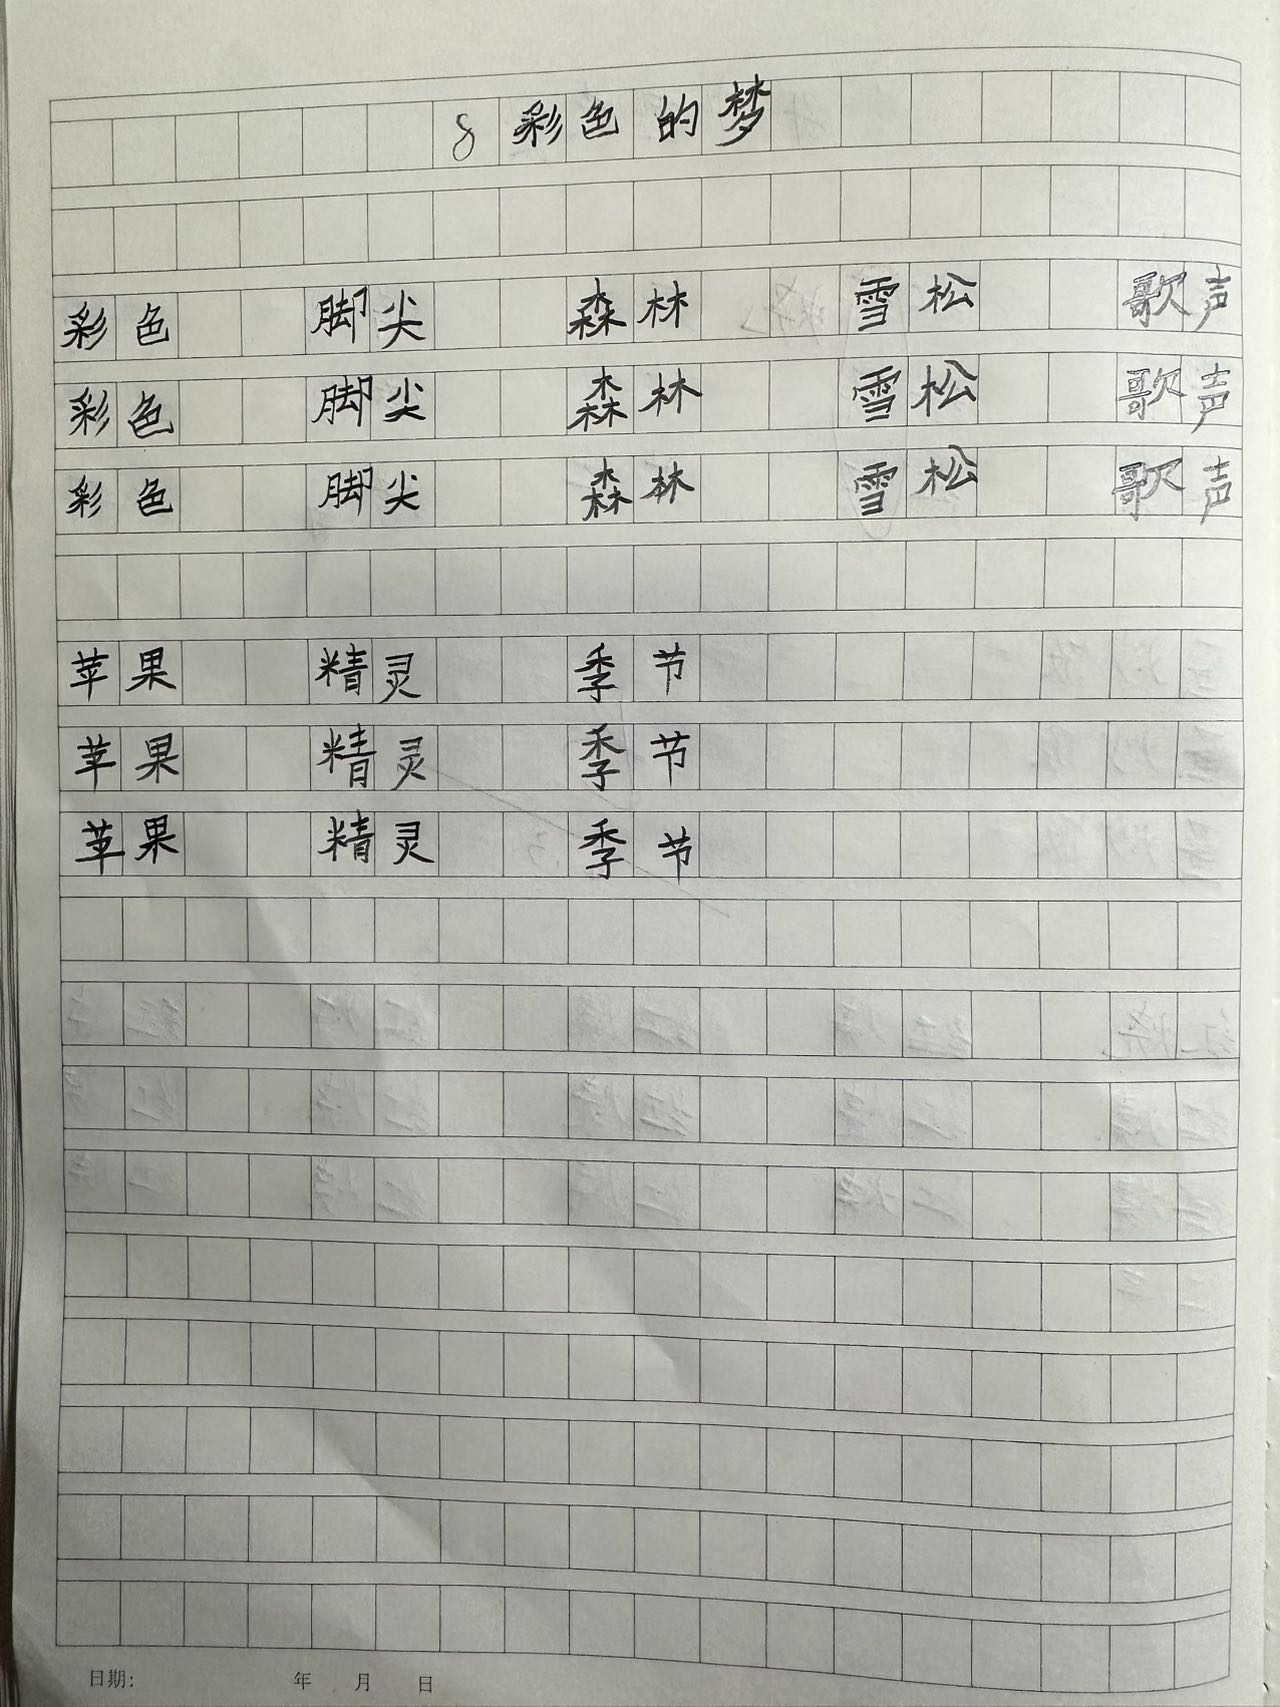 8 彩色的梦
彩色 脚尖 森林 雪松 歌声
彩色 脚尖 森林 雪松 歌声
彩色 脚尖 森林 雪松 歌声
苹果 精灵 季节
苹果 精灵 季节
苹果 精灵 季节
日期: 年 月 日